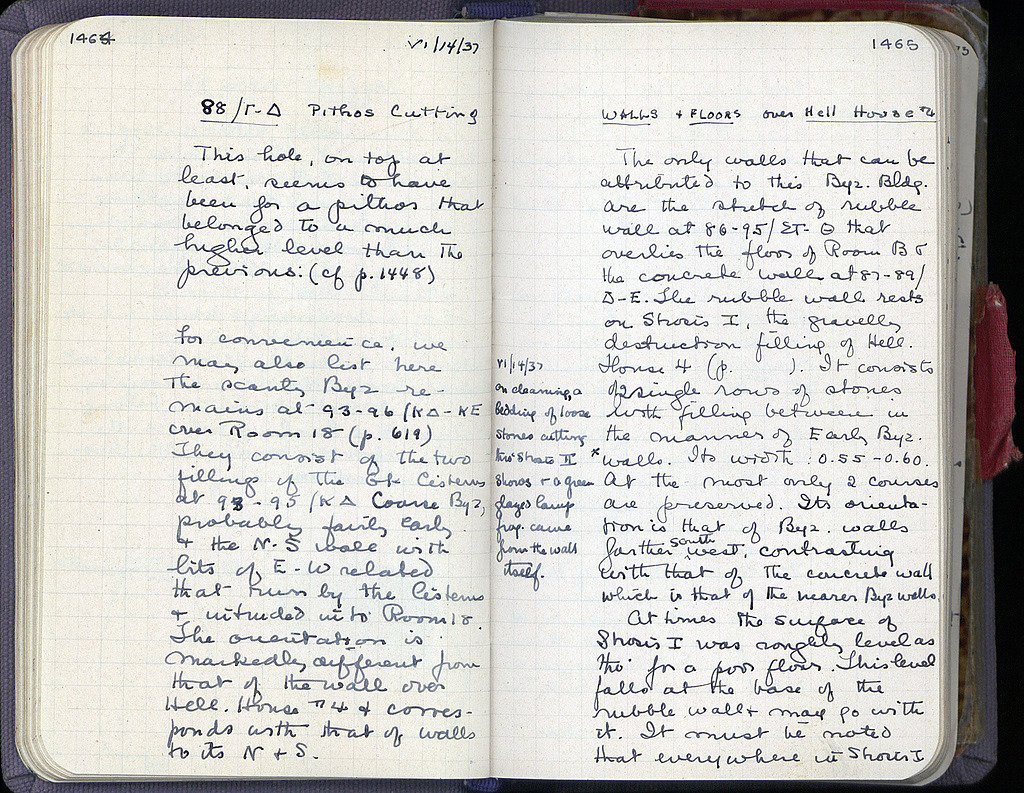 1464
VI/14/37
88/Γ-Δ Pithos Cutting
This hole, on top at
least, seems to have
been for a pithos that
belonged to a much
higher level than the
previous: (cf p. 1448)
For convenience, we
may also list here
the scanty Byz re-
mains at 93-96/ΚΔ-ΚΕ
over Room 18 (p. 619)
They consist of the two
fillings of the Gk Cisterns
at 93-95/ΚΔ Coarse Byz,
probably fairly early.
+ the N-S wall with
bits of E-W related
that runs by the Cisterns
+ intruded into Room 18.
The orientation is
markedly different from
that of the wall over
Hell. House #4 + corres-
ponds with that of walls
to its N + S.
1465
WALLS + FLOORS over Hell House #4
The only walls that can be
attributed to this Byz. Bldg.
are the stretch of rubble
wall at 86-95/ΣΤ-Θ that
overlies the floor of Room B &
the concrete wall at 87-89/
Δ-Ε. The rubble wall rests
on Strosis I, the gravelly
destruction filling of Hell.
House 4 (p. ). It consists
of 2 single rows of stones
with filling between in
the manner of Early Byz.
* walls. Its width: 0.55-0.60.
At the most only 2 courses
are preserved. Its orienta-
tion is that of Byz. walls
farther south west, contrasting
with that of the concrete wall
which is that of the nearer Byz walls.
At times the surface of
Strosis I was roughly level as
tho' for a poor floor. This level
falls at the base of the
rubble wall + may go with
it. It must be noted
that everywhere in Strosis I
VI/14/37
on cleaning, a
bedding of loose
stones cutting
thro' Strosis II
shows + a green
glazed lamp
frag. came
from the wall
itself.